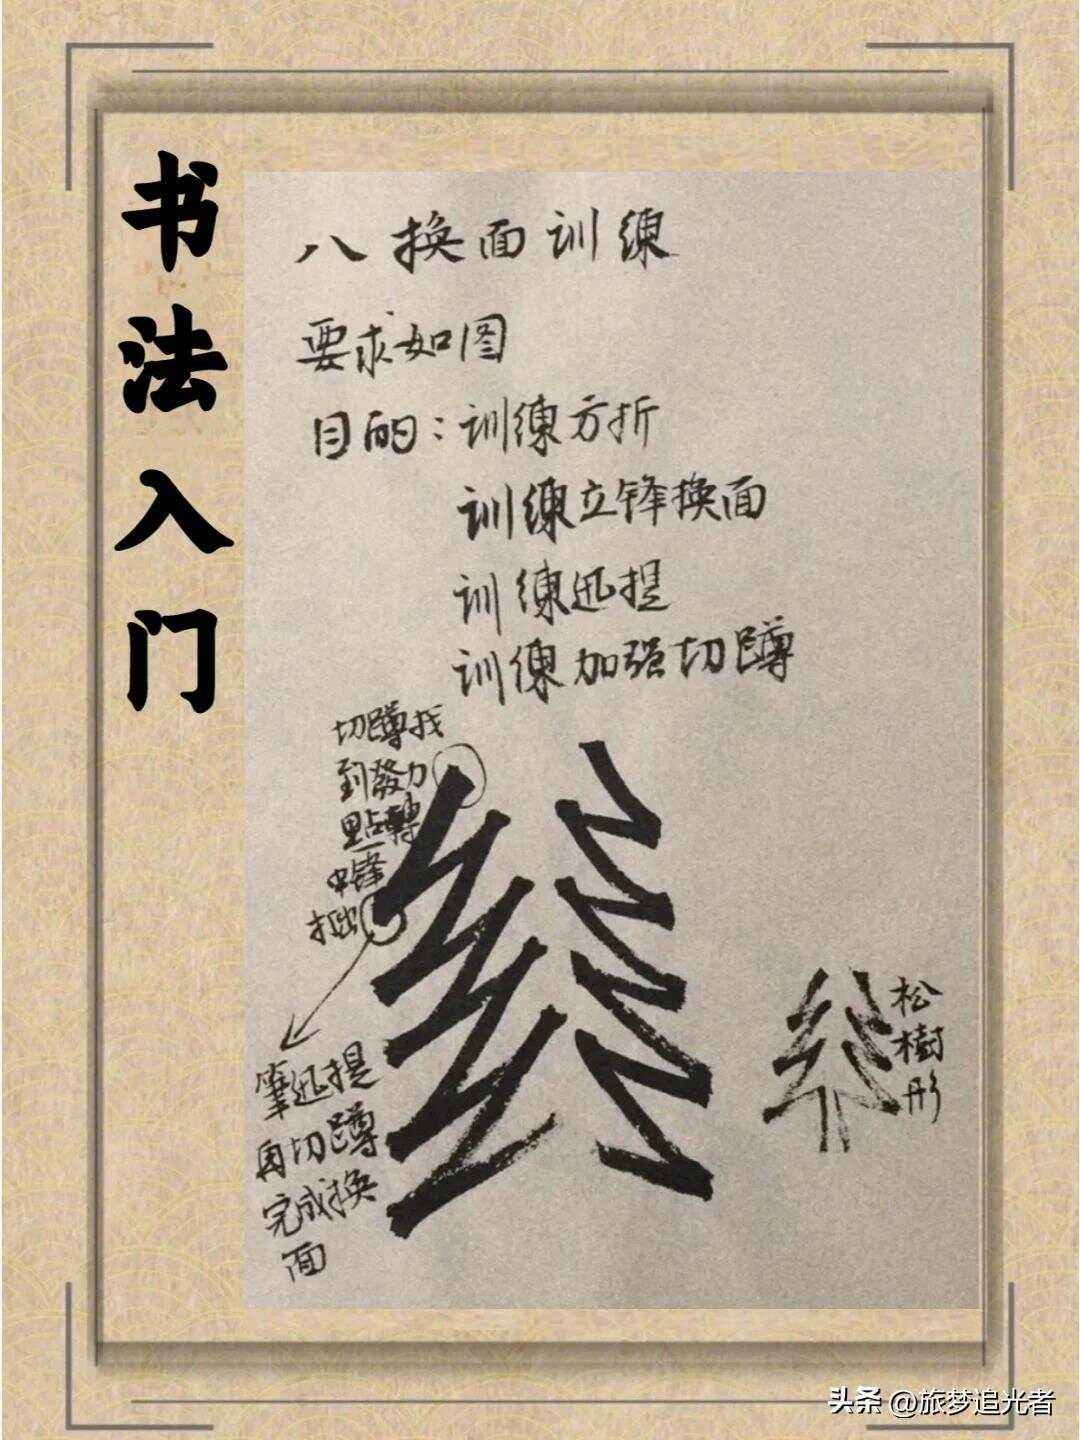 书法入门
八换面训练
要求如图
目的：训练方折
训练立锋换面
训练迅提
训练加强切蹲
切蹲找
到發力
點轉
中锋
拖出
筆迅提
再切蹲
完成换
面
松樹形
头条 @旅梦追光者